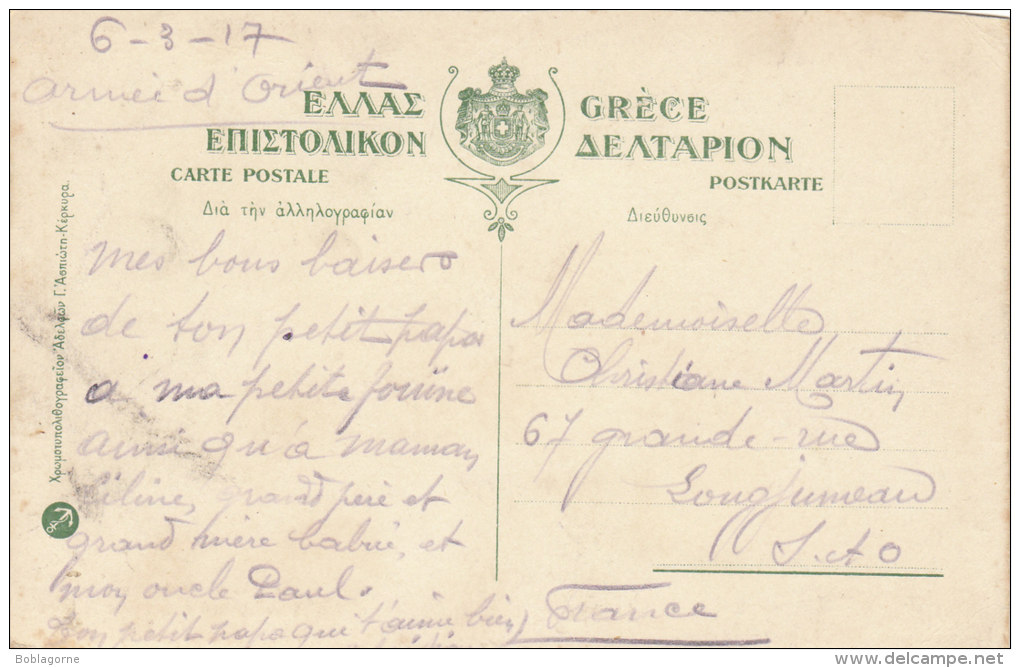 6-3-17
Armée d'Orient
ΕΛΛΑΣ
ΕΠΙΣΤΟΛΙΚΟΝ
CARTE POSTALE
GRÈCE
ΔΕΛΤΑΡΙΟΝ
POSTKARTE
Διὰ τὴν ἀλληλογραφίαν
Διεύθυνσις
mes bons baisers
de ton petit papa
a ma petite
ainsi qu'à maman,
Céline, grand père et
grand mère et
mon oncle Paul.
Ton petit papa qui t'aime bien
Mademoiselle
Christiane Martin
67 grande-rue
Longjumeau
S. et O
France
Χρωμοτυπολιθογραφεῖον Ἀδελφῶν Γ. Ἀσπιώτη-Κέρκυρα.
Boblagorne
delcampe.net